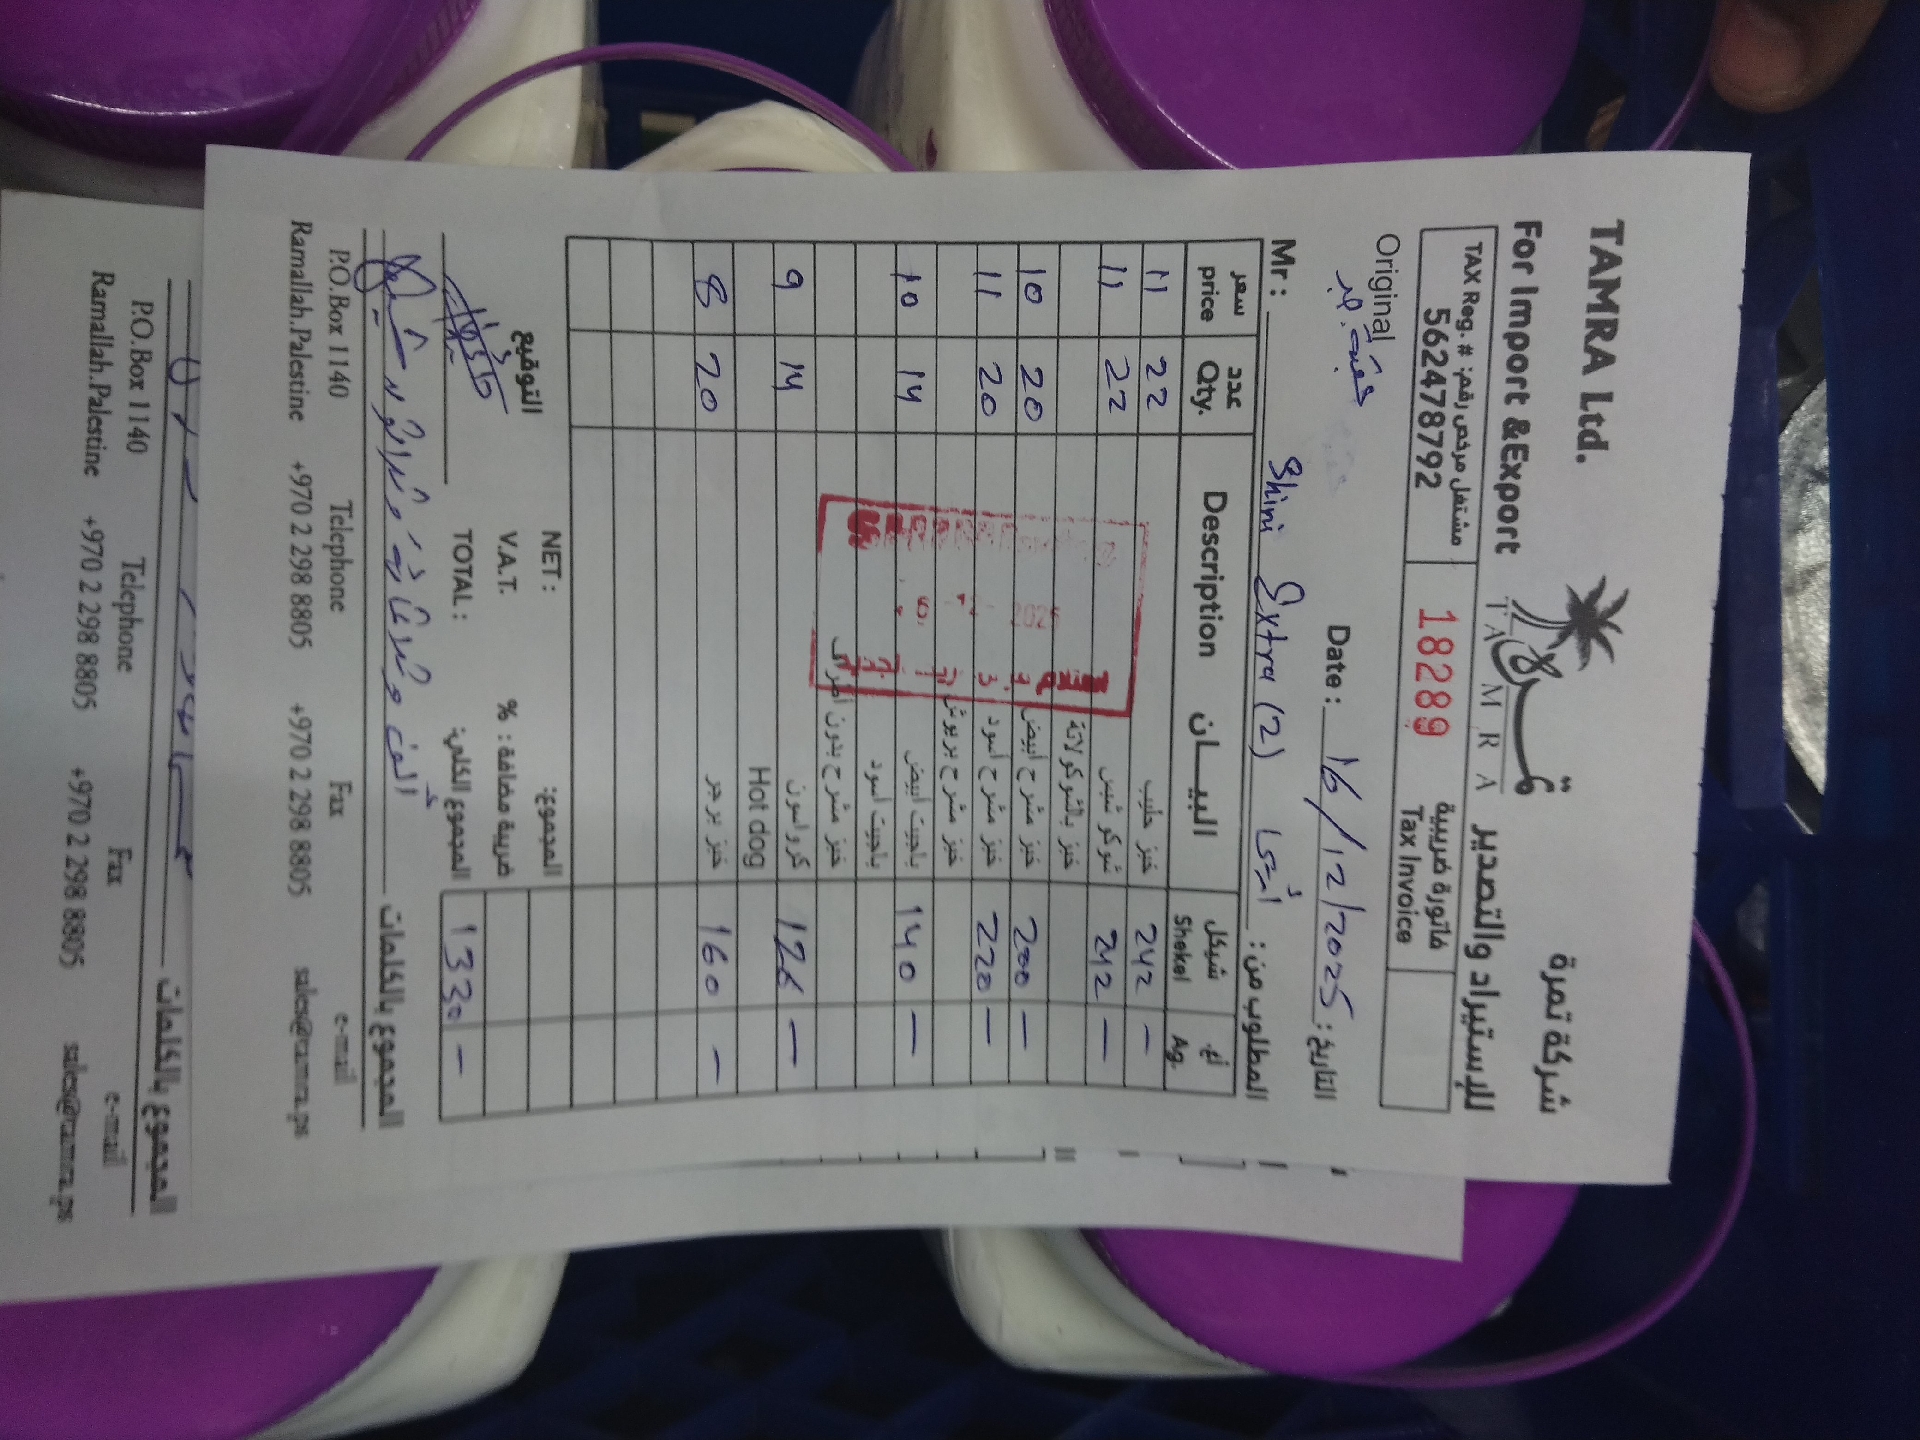 TAMRA Ltd.
For Import &Export
شركة تمرة
للإستيراد والتصدير
TAMRA
TAX Reg. # مشتغل مرخص رقم:
562478792
18289
فاتورة ضريبية
Tax Invoice
Original
Date : 16/12/2025 التاريخ:
Mr : Shini Extra (2) المطلوب من:
سعر price عدد Qty. Description البيـــان شيكل Shekel أغ. Ag.
11 22 خبز حليب 242 -
11 22 شوكو شبس 242 -
خبز بالشوكولاتة
10 20 خبز مشرح أبيض 200 -
11 20 خبز مشرح أسود 220 -
خبز مشرح بريوش
10 14 باجيت أبيض 140 -
باجيت أسود
خبز مشرح بدون أطراف
9 14 كرواسون 126 -
Hot dog
8 20 خبز برجر 160 -
NET : المجموع:
V.A.T. % ضريبة مضافة :
TOTAL : المجموع الكلي: 1330 -
التوقيع
المجموع بالكلمات
P.O.Box 1140 Telephone Fax e-mail
Ramallah.Palestine +970 2 298 8805 +970 2 298 8805 sales@tamra.ps
المجموع بالكلمات
P.O.Box 1140 Telephone Fax e-mail
Ramallah.Palestine +970 2 298 8805 +970 2 298 8805 sales@tamra.ps